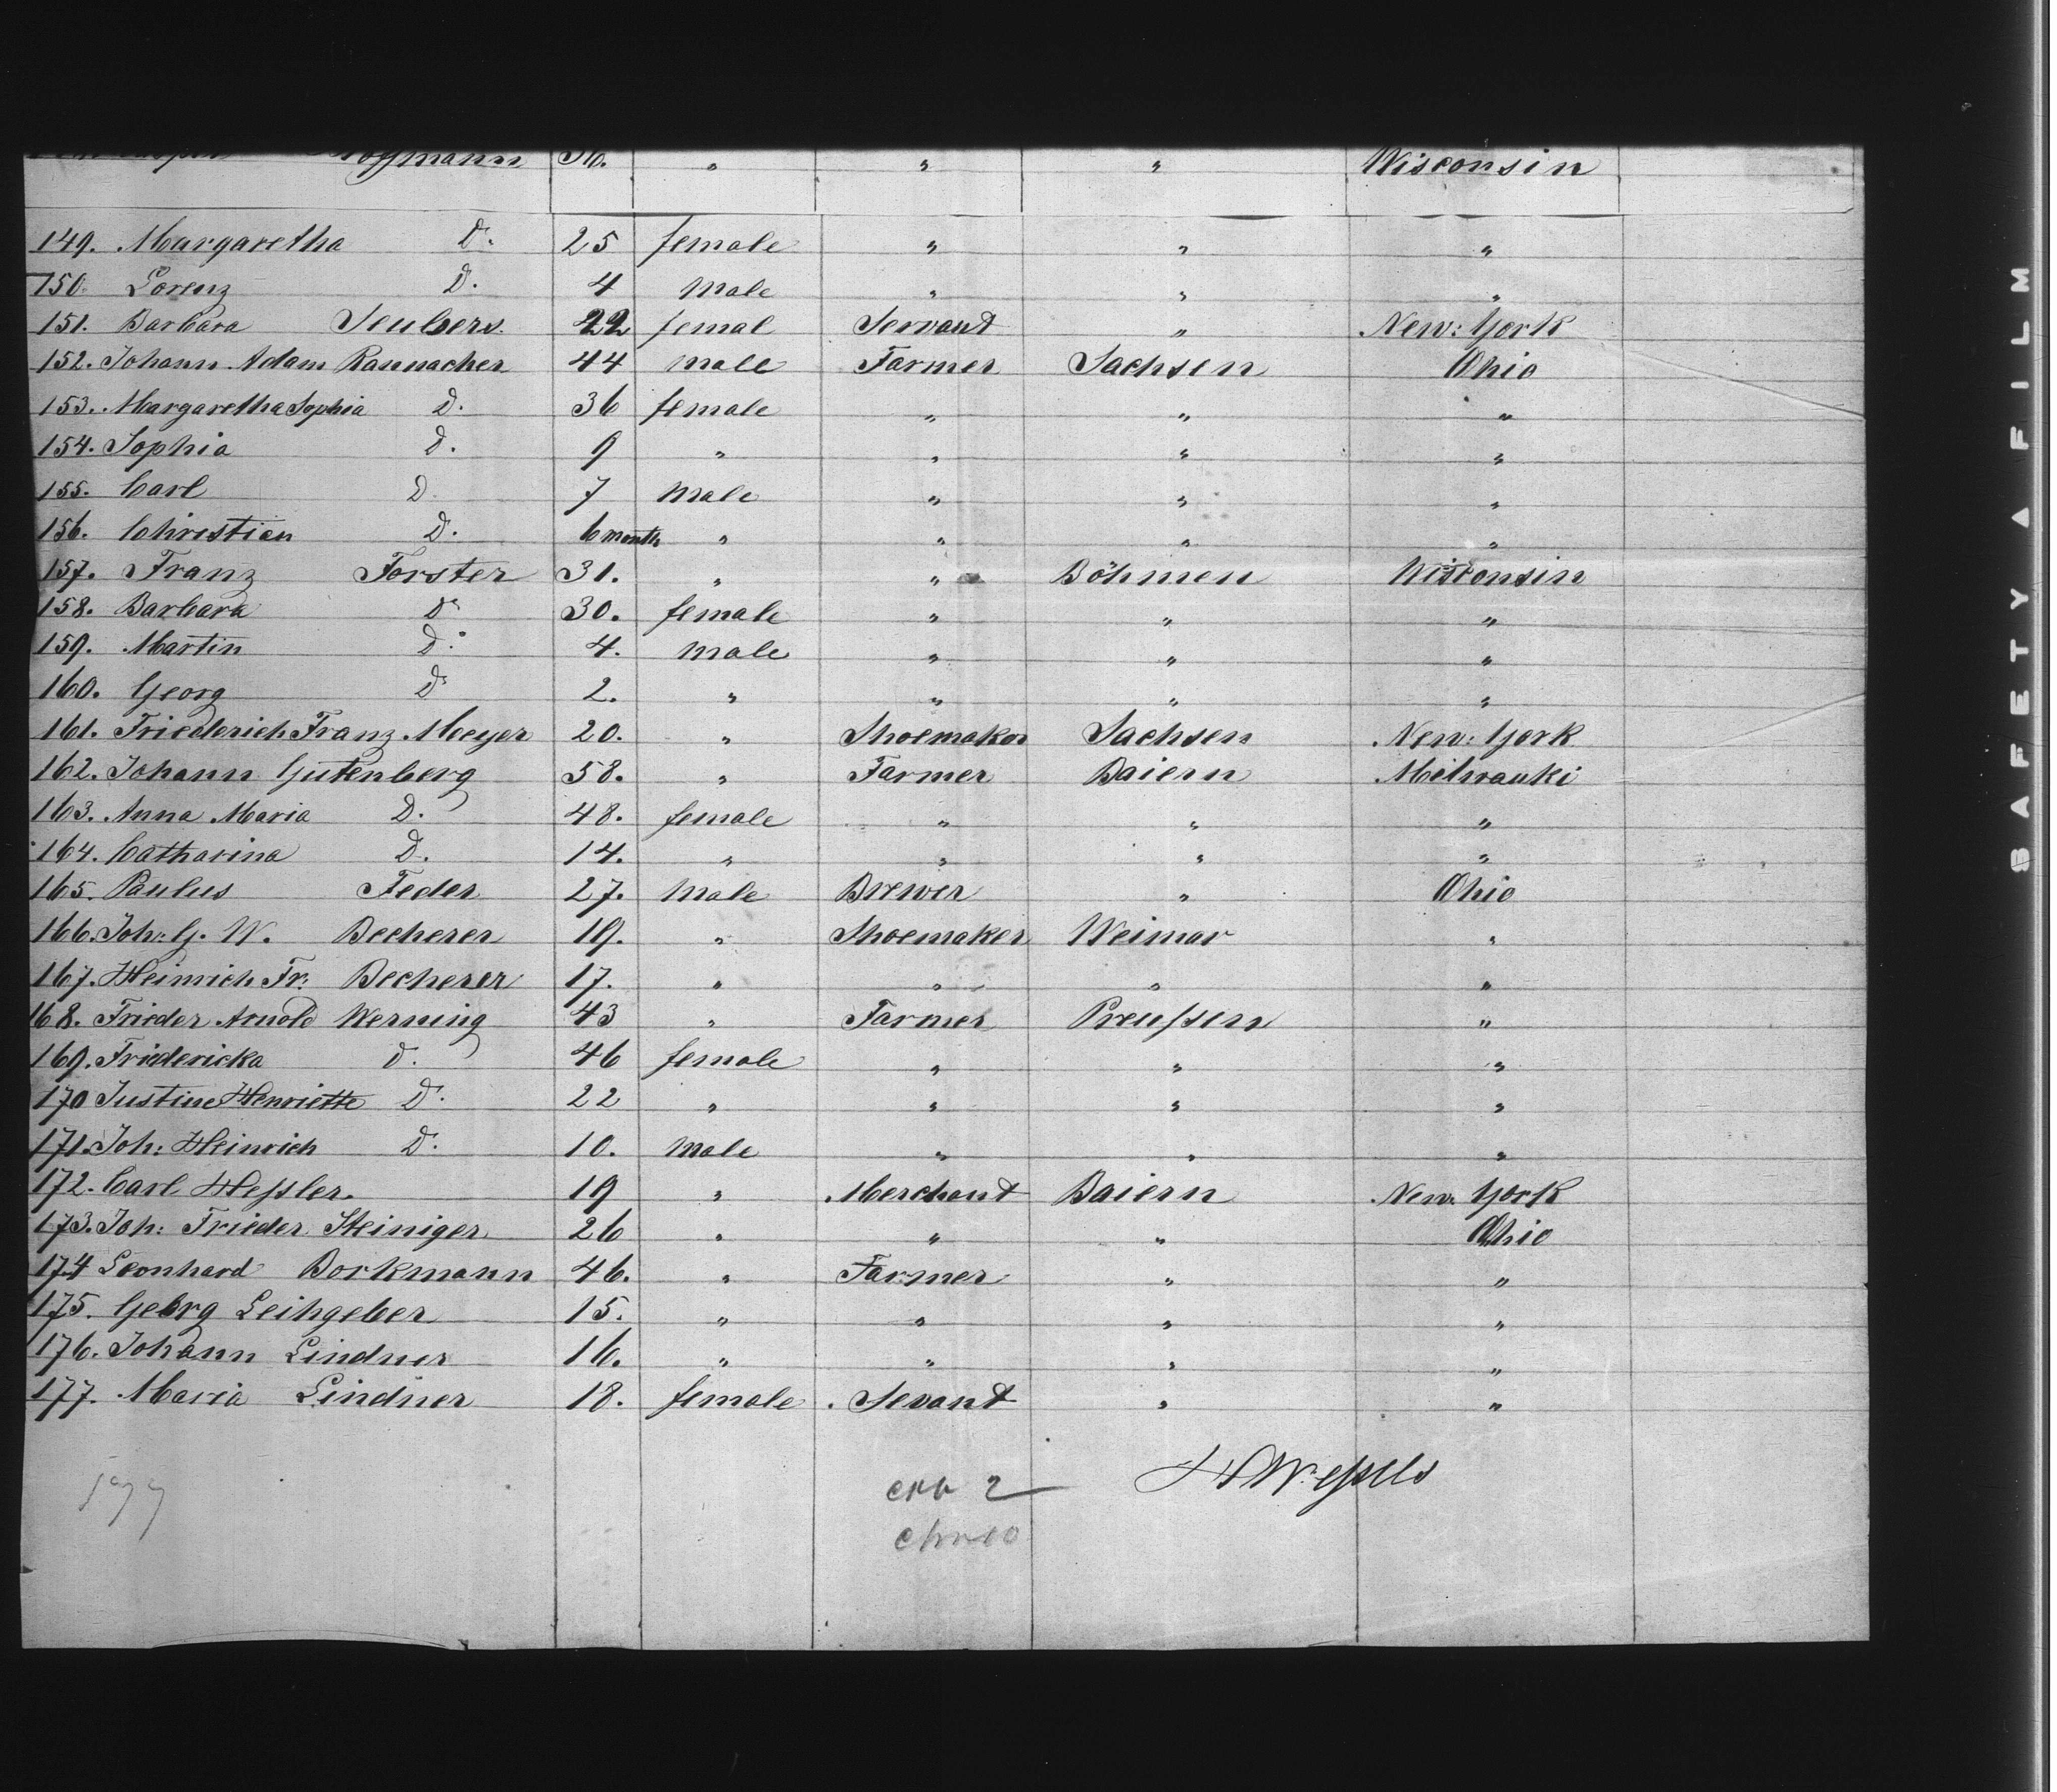 36. " " " Wisconsin
149. Margaretha D. 25 female " " "
150. Lorenz D. 4 male " " "
151. Barbara 22 femal Servant " New: York
152. Johann Adam Rannacher 44 male Farmer Sachsen Ohio
153. Margaretha Sophia D. 36 female " " "
154. Sophia D. 9 " " " "
155. Carl D. 7 male " " "
156. Christian D. 6 months " " " "
157. Franz Forster 31. " " Böhmen Wisconsin
158. Barbara D. 30. female " " "
159. Martin D. 4. male " " "
160. Georg D. 2. " " " "
161. Friederich Franz Meeyer 20. " Shoemaker Sachsen New: York
162. Johann Gutenberg 58. " Farmer Baiern Milwauki
163. Anna Maria D. 48. female " " "
164. Catharina D. 14. " " " "
165. Paulus Feder 27. male Brewer " Ohio
166. Joh: G. W. Becherer 19. " Shoemaker Weimar "
167. Heinrich Fr: Becherer 17. " " " "
168. Frieder Arnold Werning 43 " Farmer Preußen "
169. Friedericka D. 46 female " " "
170 Justine Henriette D. 22 " " " "
171. Joh: Heinrich D. 10. male " " "
172. Carl Heßler. 19 " Merchant Baiern New: York
173. Joh: Frieder Steiniger 26 " " " Ohio
174 Leonhard Borkmann 46. " Farmer " "
175. Georg Leihgeber 15. " " " "
176. Johann Lindner 16. " " " "
177. Maria Lindner 18. female Sevant " "
H Weßels
177
SAFETY FILM